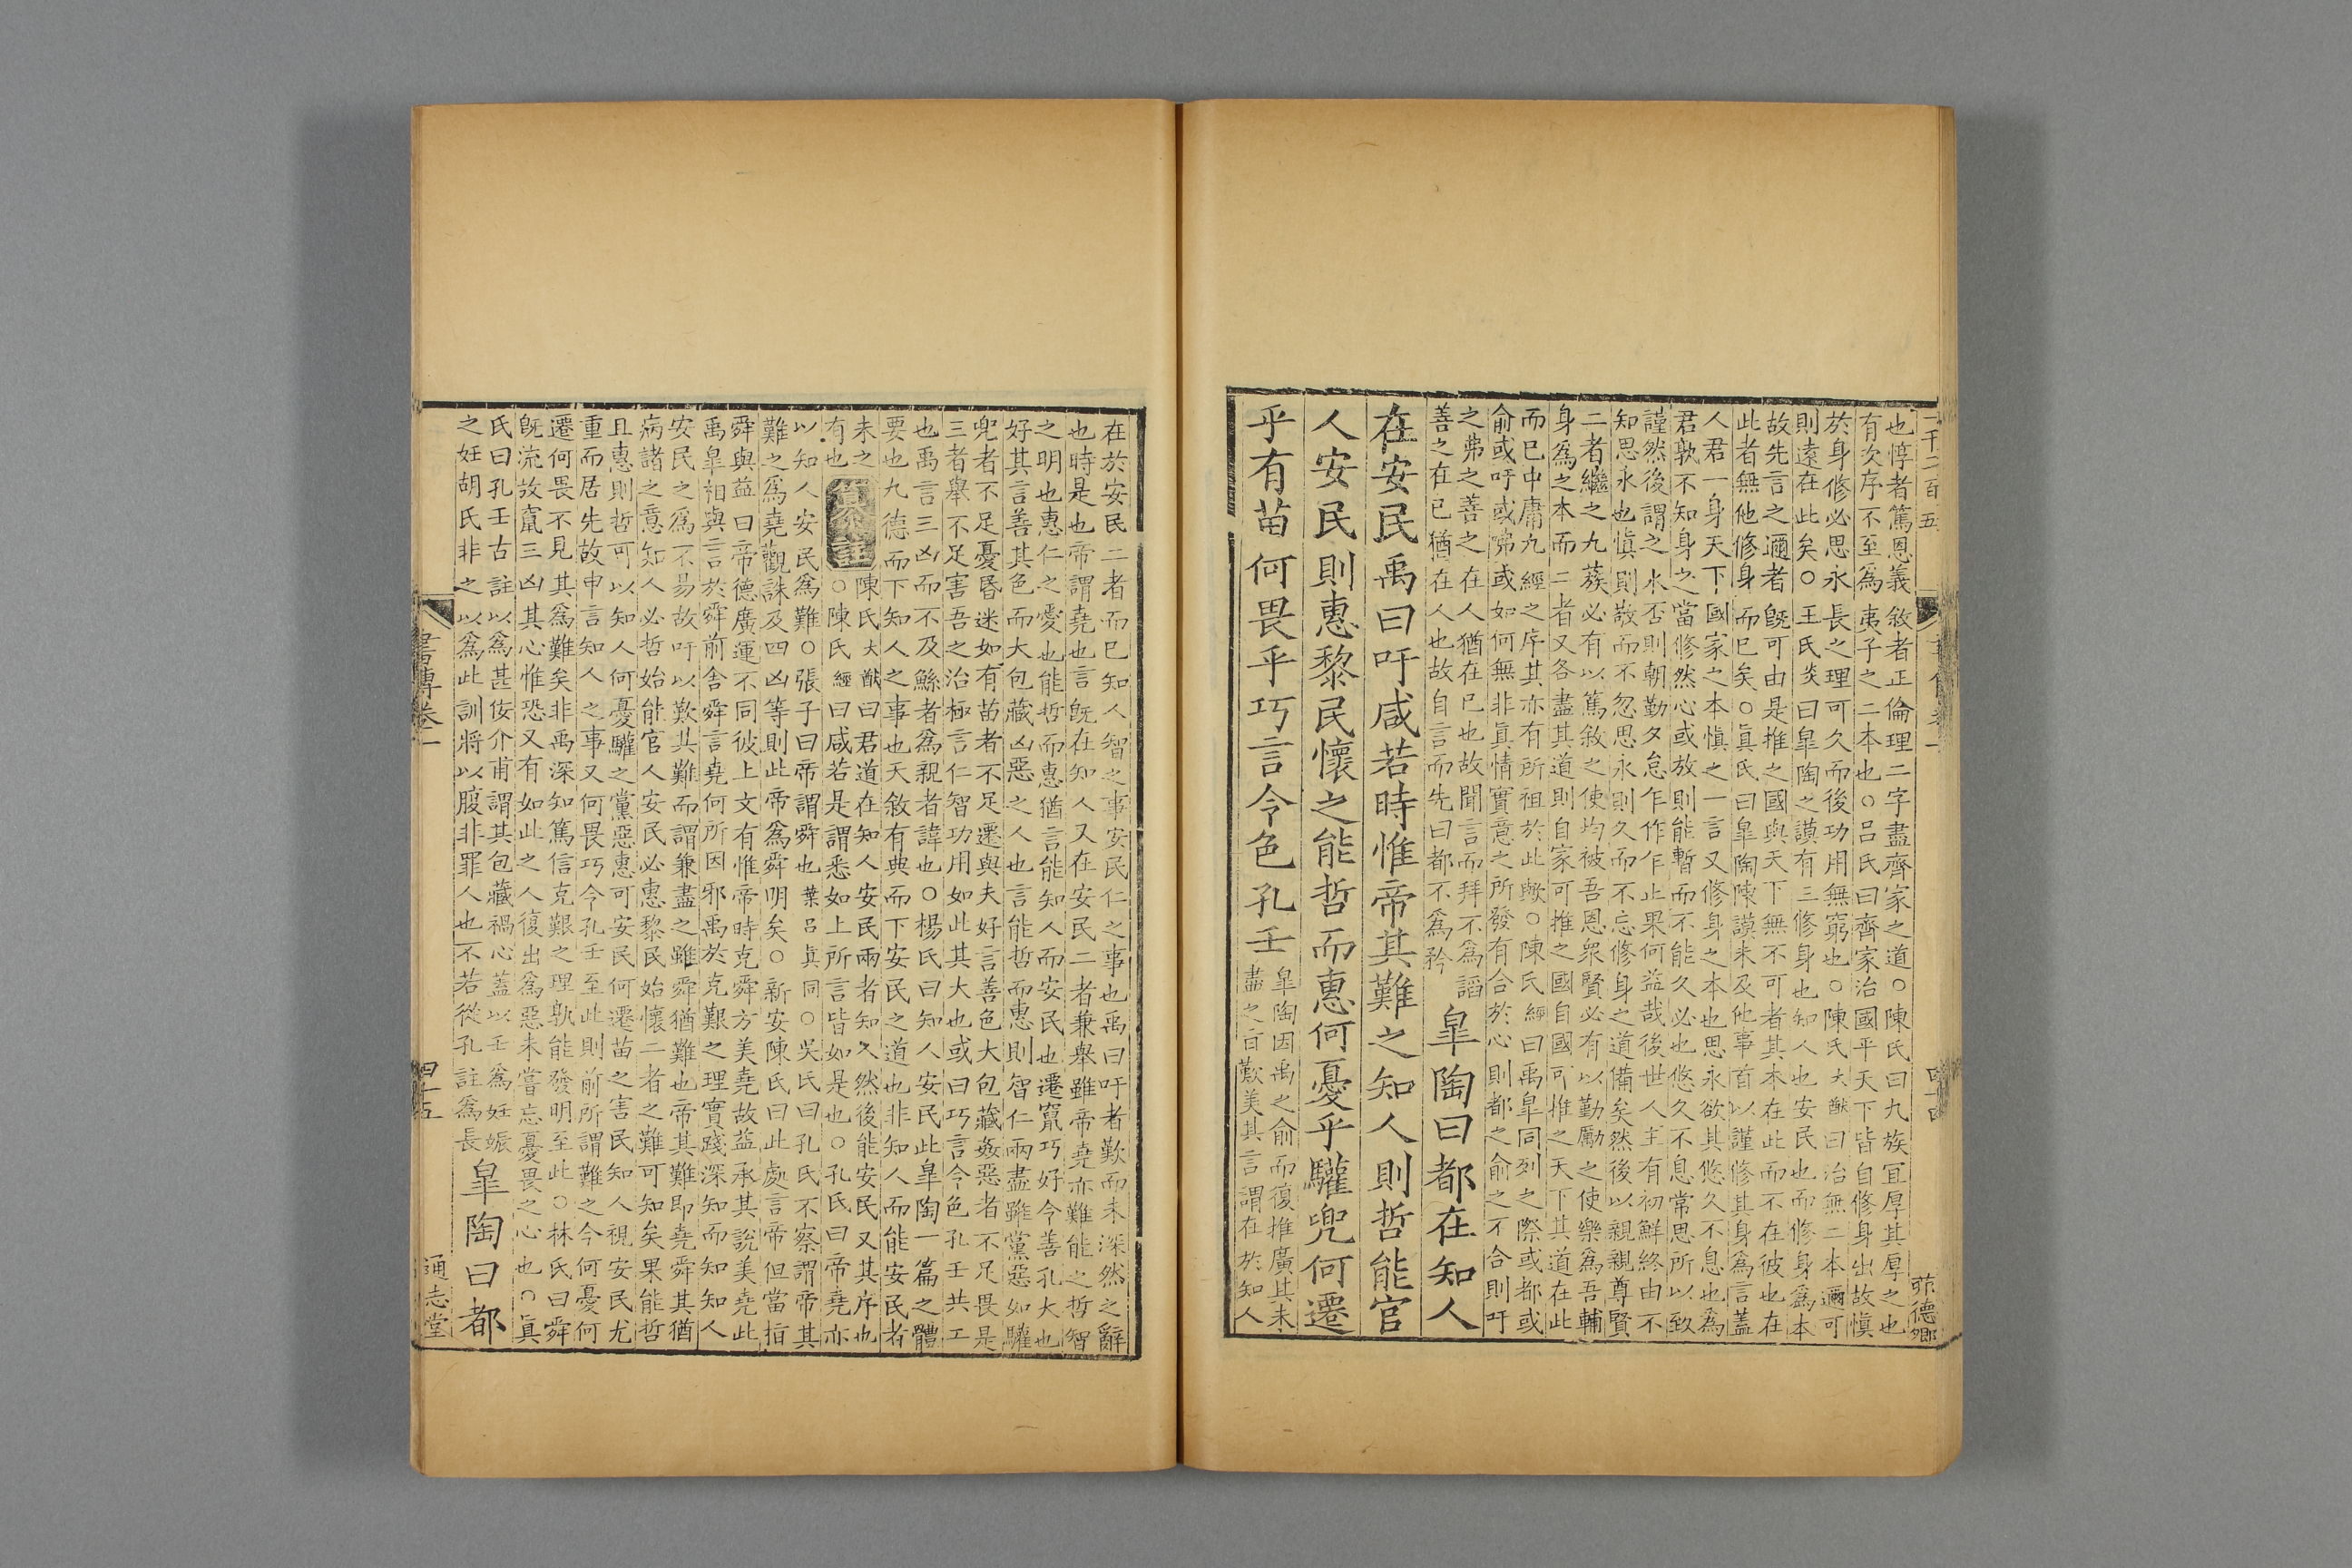 二千二百五
四十四
也惇者篤恩義敘者正倫理二字盡齊家之道○陳氏曰九族冝厚其厚之也
有次序不至爲夷子之二本也○呂氏曰齊家治國平天下皆自修身出故愼
於身修必思永長之理可久而後功用無窮也○陳氏大猷曰治無二本邇可
則遠在此矣○王氏炎曰皐陶之謨有三修身也知人也安民也而修身爲本
故先言之邇者旣可由是推之國與天下無不可者其本在此而不在彼也在
此者無他修身而已矣○眞氏曰皐陶陳謨未及他事首以謹修其身爲言蓋
人君一身天下國家之本愼之一言又修身之本也思永欲其悠久不息也爲
君孰不知身之當修然心或放則能暫而不能久必也悠久不息常思所以致
謹然後謂之永否則朝勤夕怠乍作乍止果何益哉後世人主有初鮮終由不
知思永也愼則敬而不忽思永則久而不忘修身之道備矣然後以親親尊賢
二者繼之九族必有以篤敘之使均被吾恩衆賢必有以勤勵之使樂爲吾輔
身爲之本而二者又各盡其道則自家可推之國自國可推之天下其道在此
而已中庸九經之序其亦有所祖於此歟○陳氏經曰禹皐同列之際或都或
俞或吁或咈或如何無非眞情實意之所發有合於心則都之俞之不合則吁
之弗之善之在人猶在已也故聞言而拜不爲謟
善之在已猶在人也故自言而先曰都不爲矜
皐陶曰都在知人
在安民禹曰吁咸若時惟帝其難之知人則哲能官
人安民則惠黎民懷之能哲而惠何憂乎驩兜何遷
乎有苗何畏乎巧言令色孔壬
皐陶因禹之俞而復推廣其未
盡之旨歎美其言謂在於知人
在於安民二者而已知人智之事安民仁之事也禹曰吁者歎而未深然之辭
也時是也帝謂堯也言旣在知人又在安民二者兼舉雖帝堯亦難能之哲智
之明也惠仁之愛也能哲而惠猶言能知人而安民也遷竄巧好令善孔大也
好其言善其色而大包藏凶惡之人也言能哲而惠則智仁兩盡雖黨惡如驩
兜者不足憂昏迷如有苗者不足遷與夫好言善色大包藏姦惡者不足畏是
三者舉不足害吾之治極言仁智功用如此其大也或曰巧言令色孔壬共工
也禹言三凶而不及鯀者爲親者諱也○楊氏曰知人安民此皐陶一篇之體
要也九德而下知人之事也天敘有典而下安民之道也非知人而能安民者
未之有也
纂註
陳氏大猷曰君道在知人安民兩者知人然後能安民又其序也
○陳氏經曰咸若是謂悉如上所言皆如是也○孔氏曰帝堯亦
以知人安民爲難○張子曰帝謂舜也葉呂眞同○吳氏曰孔氏不察謂帝其
難之爲堯觀誅及四凶等則此帝爲舜明矣○新安陳氏曰此處言帝但當指
舜與益曰帝德廣運不同彼上文有惟帝時克舜方美堯故益承其說美堯此
禹皐相與言於舜前舍舜言堯何所因邪禹於克艱之理實踐深知而知知人
安民之爲不易故吁以歎其難而謂兼盡之雖舜猶難也帝其難即堯舜其猶
病諸之意知人必哲始能官人安民必惠黎民始懷二者之難可知矣果能哲
且惠則哲可以知人何憂驩之黨惡惠可安民何遷苗之害民知人視安民尤
重而居先故申言知人之事又何畏巧令孔壬至此則前所謂難之今何憂何
遷何畏不見其爲難矣非禹深知篤信克艱之理孰能發明至此○林氏曰舜
旣流放竄三凶其心惟恐又有如此之人復出爲惡未嘗忘憂畏之心也○眞
氏曰孔壬古註以爲甚佞介甫謂其包藏禍心蓋以壬爲妊娠
之妊胡氏非之以爲此訓將以腹非罪人也不若從孔註爲長
皐陶曰都
書傳卷一
四十五
通志堂